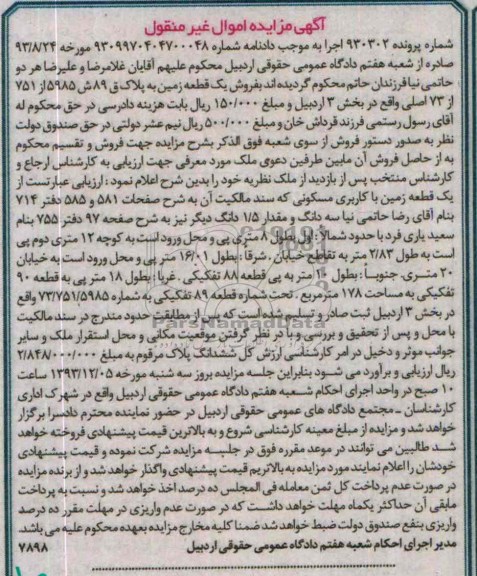 آگهی مزایده اموال غیر منقول
شماره پرونده ۹۳۰۳۰۲ اجرا به موجب دادنامه شماره ۹۳۰۹۹۷۰۴۰۴۷۰۰۰۴۸ مورخه ۹۳/۸/۲۴
صادره از شعبه هفتم دادگاه عمومی حقوقی اردبیل محکوم علیهم آقایان غلامرضا و علیرضا هر دو
حاتمی نیا فرزندان حاتم محکوم گردیده اند بفروش یک قطعه زمین به پلاک ق ۸۹ ش ۵۹۸۵ از ۷۵۱
از ۷۳ اصلی واقع در بخش ۳ اردبیل و مبلغ ۱۵۰/۰۰۰ ریال بابت هزینه دادرسی در حق محکوم له
آقای رسول رستمی فرزند قرداش خان و مبلغ ۵۰۰/۰۰۰ ریال نیم عشر دولتی در حق صندوق دولت
نظر به صدور دستور فروش از سوی شعبه فوق الذکر بشرح مزایده جهت فروش و تقسیم محکوم
به از حاصل فروش آن مابین طرفین دعوی ملک مورد معرفی جهت ارزیابی به کارشناس ارجاع و
کارشناس منتخب پس از بازدید از ملک نظریه خود را بدین شرح اعلام نمود : ارزیابی عبارتست از
یک قطعه زمین با کاربری مسکونی که سند مالکیت آن به شرح صفحات ۵۸۱ و ۵۸۵ دفتر ۷۱۴
بنام آقای رضا حاتمی نیا سه دانگ و مقدار ۱/۵ دانگ دیگر نیز به شرح صفحه ۹۷ دفتر ۷۵۵ بنام
سعید یاری فرد با حدود شمالاً : اول بطول ۸ متری پی و محل ورود است به کوچه ۱۲ متری دوم پی
است به طول ۲/۸۳ متر به تقاطع خیابان . شرقاً : بطول ۱۶/۰۱ متر پی و محل ورود است به خیابان
۲۰ متری. جنوباً : بطول ۱۰ متر به پی قطعه ۸۸ تفکیکی . غرباً : بطول ۱۸ متر پی به قطعه ۹۰
تفکیکی به مساحت ۱۷۸ مترمربع . تحت شماره قطعه ۸۹ تفکیکی به شماره ۷۳/۷۵۱/۵۹۸۵ واقع
در بخش ۳ اردبیل ثبت صادر و تسلیم شده است که پس از مطابقت حدود مندرج در سند مالکیت
با محل و پس از تحقیق و بررسی و با در نظر گرفتن موقعیت مکانی و محل استقرار ملک و سایر
جوانب موثر و دخیل در امر کارشناسی ارزش کل ششدانگ پلاک مرقوم به مبلغ ۲/۸۴۸/۰۰۰/۰۰۰
ریال ارزیابی و برآورد می شود بنابراین جلسه مزایده بروز سه شنبه مورخه ۱۳۹۳/۱۲/۰۵ ساعت
۱۰ صبح در واحد اجرای احکام شعبه هفتم دادگاه عمومی حقوقی اردبیل واقع در شهرک اداری
کارشناسان - مجتمع دادگاه های عمومی حقوقی اردبیل در حضور نماینده محترم دادسرا برگزار
خواهد شد و مزایده از مبلغ معینه کارشناسی شروع و به بالاترین قیمت پیشنهادی فروخته خواهد
شد طالبین می توانند در موعد مقرره فوق در جلسه مزایده شرکت نموده و قیمت پیشنهادی
خودشان را اعلام نمایند مورد مزایده به بالاتریم قیمت پیشنهادی واگذار خواهد شد و از برنده مزایده
در صورت عدم پرداخت کل ثمن معامله فی المجلس ده درصد اخذ خواهد شد و نسبت به پرداخت
مابقی آن حداکثر یکماه مهلت خواهد داشت که در صورت عدم واریزی در مهلت مقرر ده درصد
واریزی بنفع صندوق دولت ضبط خواهد شد ضمنا کلیه مخارج مزایده بعهده محکوم علیه می باشد.
مدیر اجرای احکام شعبه هفتم دادگاه عمومی حقوقی اردبیل ۷۸۹۸
ParsNamadData